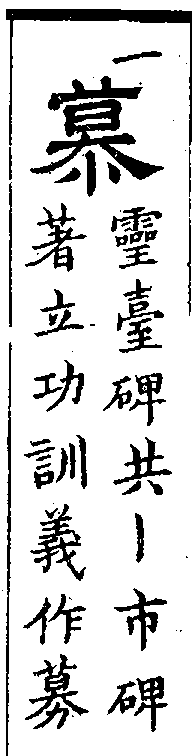 一
慕
靈臺碑共丨市碑
著立功訓義作募